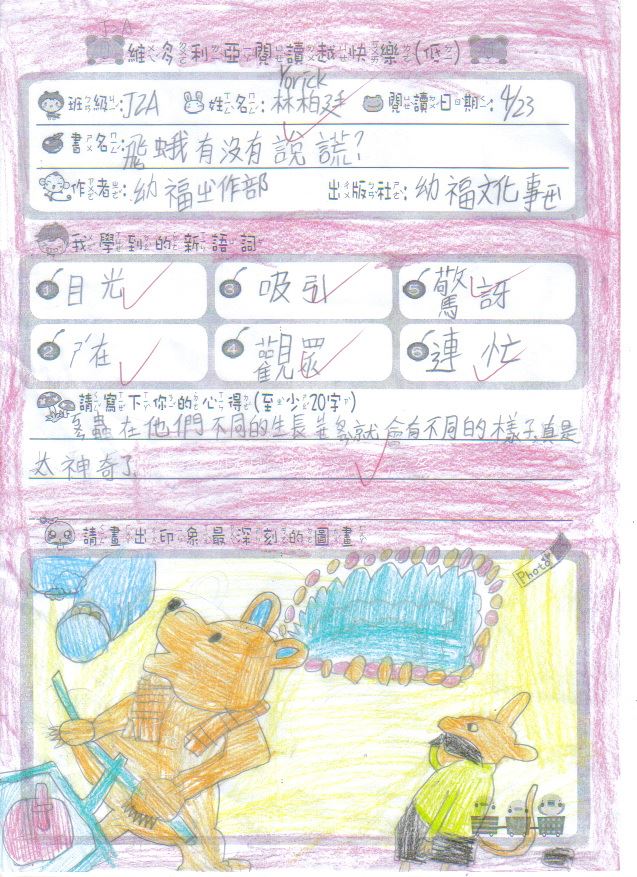 維多利亞閱讀越快樂(低)
Yorick
班級:J2A 姓名:林柏廷 閱讀日期:4/23
書名:飛蛾有沒有說謊?
作者:幼福ㄓ作部 出版社:幼福文化事
我學到的新語詞
1 目光 3 吸引 5 驚訝
2 在 4 觀眾 6 連忙
請寫下你的心得(至少20字)
蟲在他們不同的生長就會有不同的樣子,真是
太神奇了
請畫出印象最深刻的圖畫
Photo